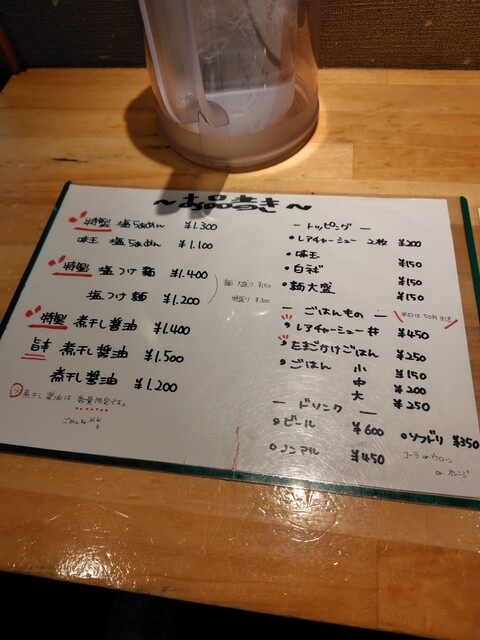 ～ お品書き ～
特製 塩らぁめん ¥1.300
味玉 塩らぁめん ¥1.100
特製 塩つけ麺 ¥1.400
塩つけ麺 ¥1.200
麺 大盛り ¥150
特盛り ¥300
特製 煮干し醤油 ¥1.400
旨辛 煮干し醤油 ¥1.500
煮干し醤油 ¥1.200
煮干し醤油は 数量限定です。
ー トッピング ー
・レアチャーシュー 2枚 ¥200
・味玉 ¥150
・白ネギ ¥150
・麺大盛 ¥150
ー ごはんもの ー
平日は 50円 引き
・レアチャーシュー丼 ¥450
・たまごかけごはん ¥250
・ごはん 小 ¥150
中 ¥200
大 ¥250
ー ドリンク ー
・ビール ¥600
・ノンアル ¥450
・ソフドリ ¥350
コーラ or ウーロン
or オレンジ